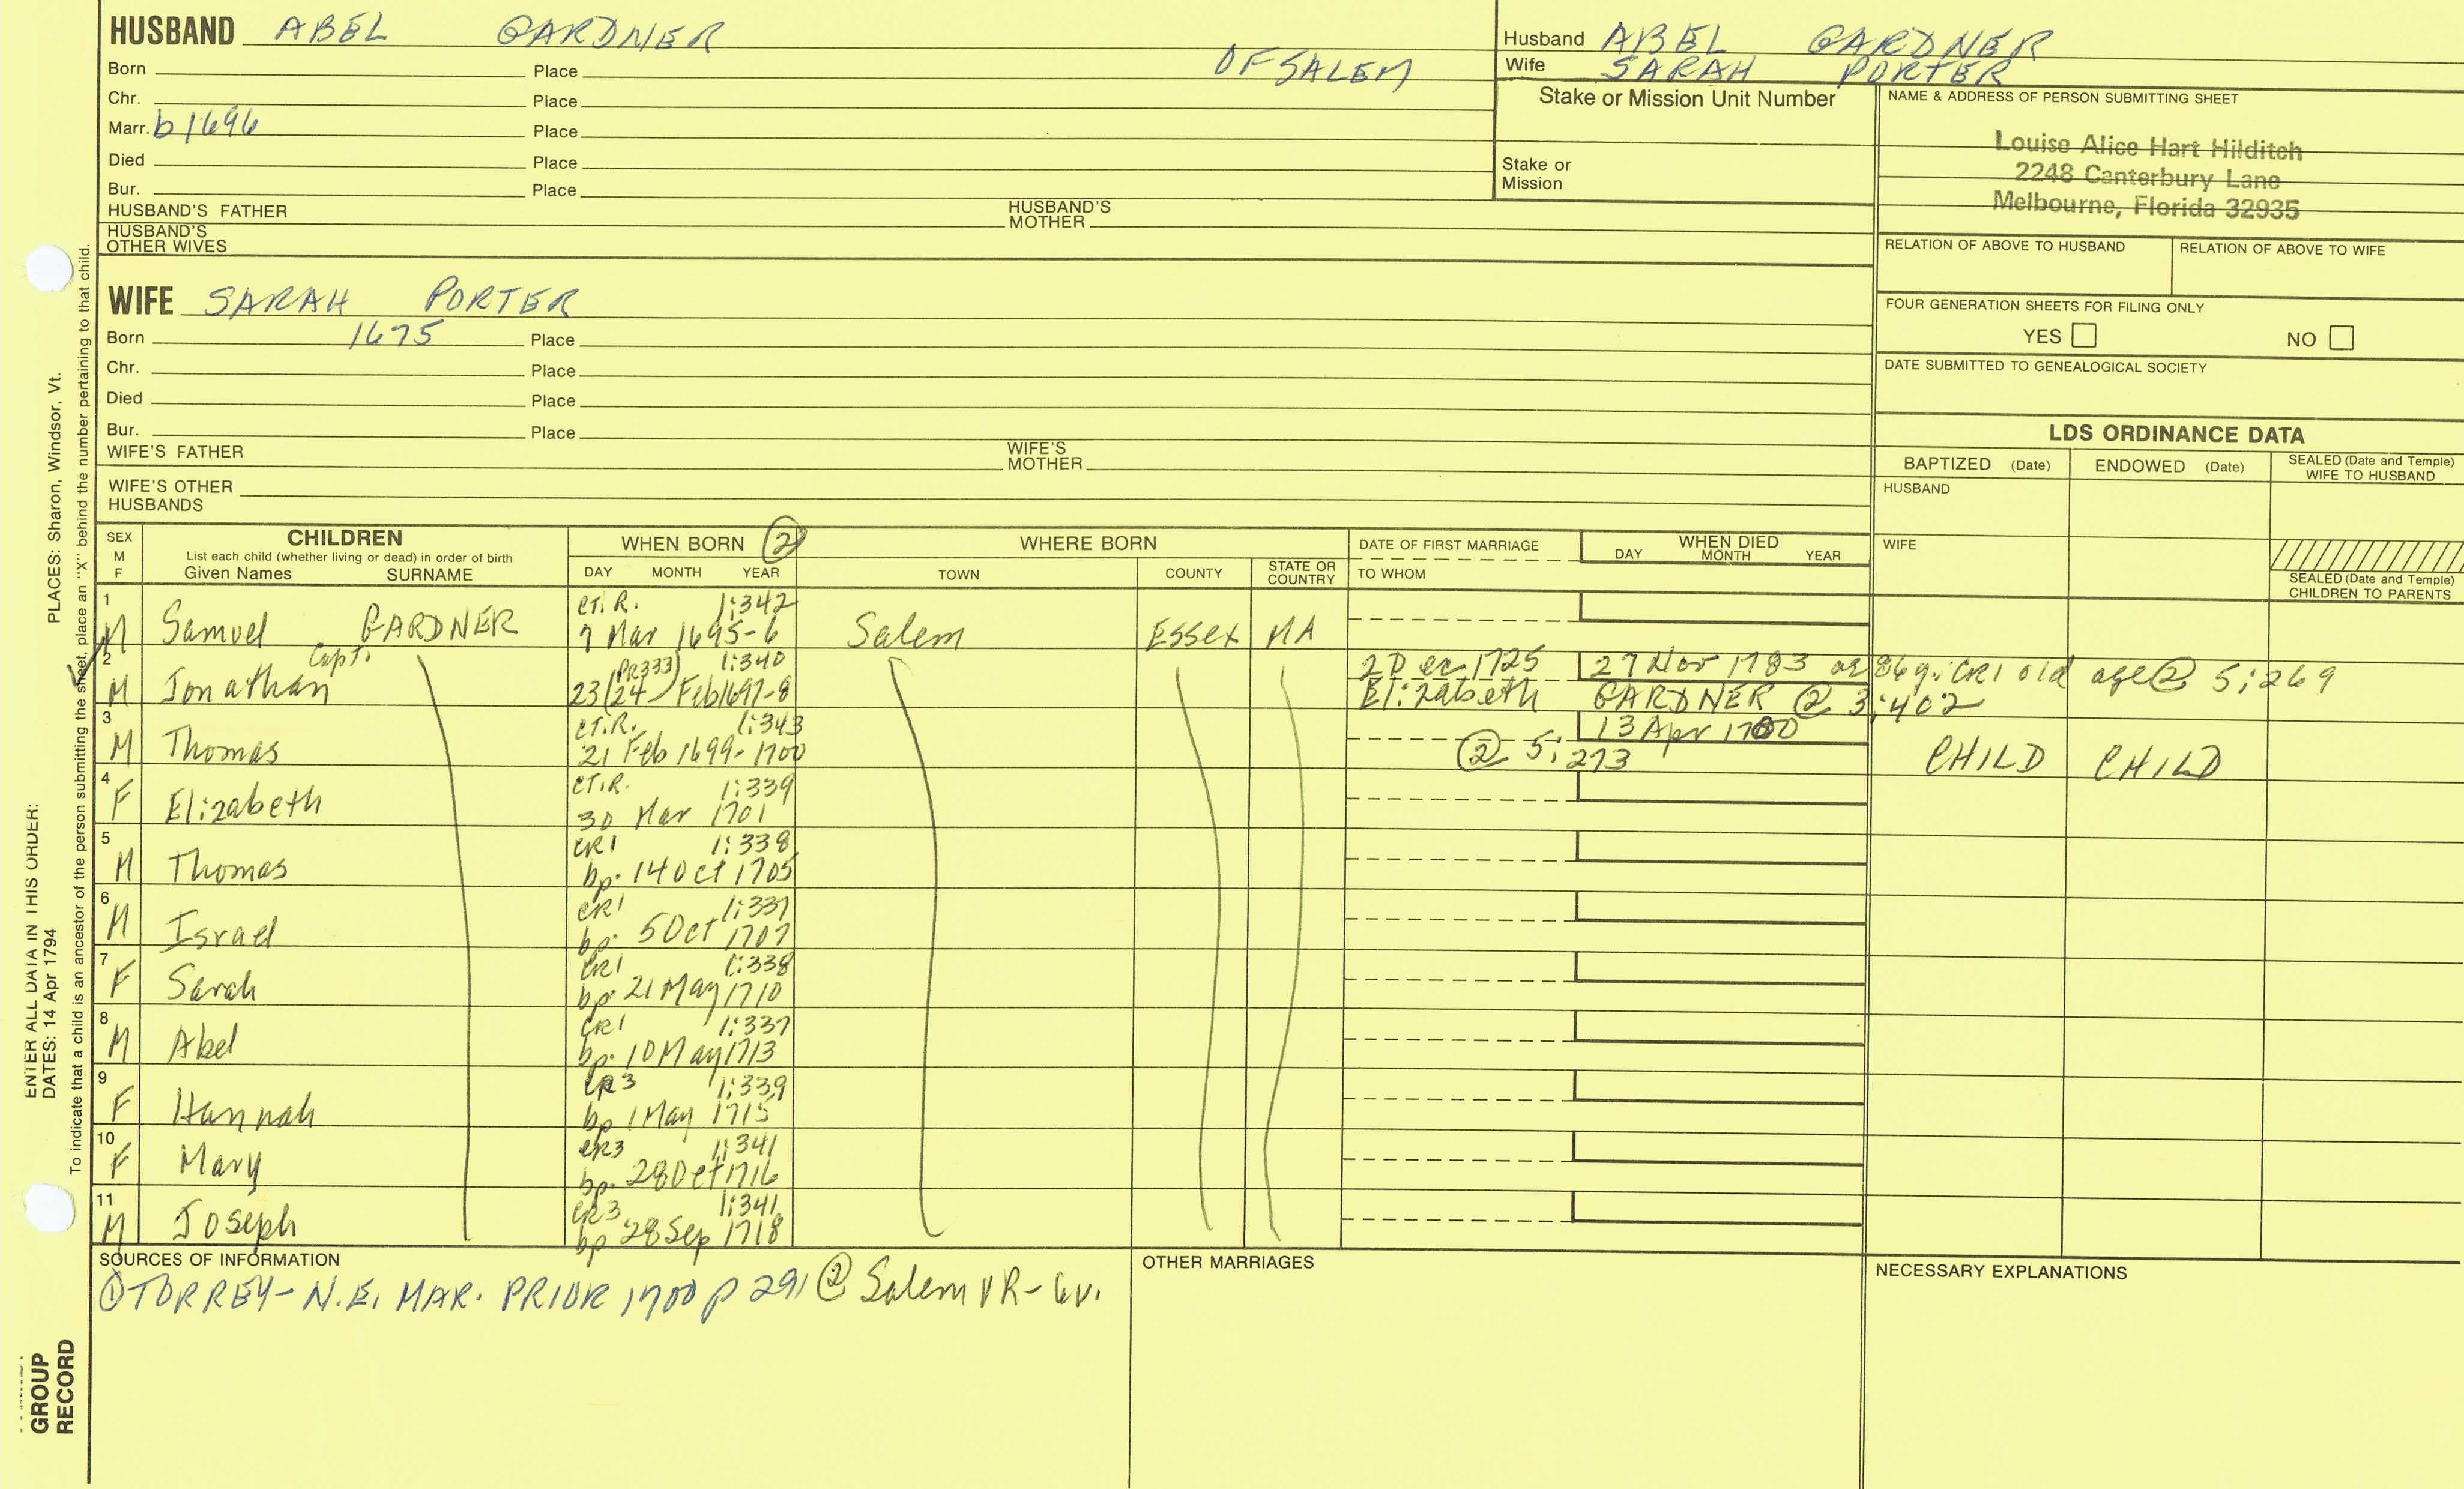 HUSBAND ABEL GARDNER
Husband ABEL GARDNER
Wife SARAH PORTER
Born Place OF SALEM
Chr. Place
Marr. b 1696 Place
Died Place
Bur. Place
HUSBAND'S FATHER HUSBAND'S MOTHER
HUSBAND'S OTHER WIVES
Stake or Mission Unit Number
Stake or Mission
NAME & ADDRESS OF PERSON SUBMITTING SHEET
Louise Alice Hart Hilditch
2248 Canterbury Lane
Melbourne, Florida 32935
RELATION OF ABOVE TO HUSBAND RELATION OF ABOVE TO WIFE
FOUR GENERATION SHEETS FOR FILING ONLY
YES NO
DATE SUBMITTED TO GENEALOGICAL SOCIETY
WIFE SARAH PORTER
Born 1675 Place
Chr. Place
Died Place
Bur. Place
WIFE'S FATHER WIFE'S MOTHER
WIFE'S OTHER HUSBANDS
LDS ORDINANCE DATA
BAPTIZED (Date) ENDOWED (Date) SEALED (Date and Temple) WIFE TO HUSBAND
HUSBAND
WIFE
SEALED (Date and Temple) CHILDREN TO PARENTS
SEX M F
CHILDREN
List each child (whether living or dead) in order of birth
Given Names SURNAME
WHEN BORN ②
DAY MONTH YEAR
WHERE BORN
TOWN COUNTY STATE OR COUNTRY
DATE OF FIRST MARRIAGE
TO WHOM
WHEN DIED
DAY MONTH YEAR
1 CT.R. 1:342
M Samuel GARDNER 7 Mar 1695-6 Salem Essex MA
2 Capt. (PR333) 1:340 2 Dec 1725 27 Nov 1783 ae 86y. CR1 old age ② 5:269
M Jonathan 23/24 Feb 1697-8 Elizabeth GARDNER ② 3:402
3 CT.R. 1:343 13 Apr 1700
M Thomas 21 Feb 1699-1700 ② 5:273 CHILD CHILD
4 CT.R. 1:339
F Elizabeth 30 Mar 1701
5 CR1 1:338
M Thomas bp. 14 Oct 1705
6 CR1 1:337
M Israel bp. 5 Oct 1707
7 CR1 1:338
F Sarah bp. 21 May 1710
8 CR1 1:337
M Abel bp. 10 May 1713
9 CR3 1:339
F Hannah bp 1 May 1715
10 CR3 1:341
F Mary bp. 28 Oct 1716
11 CR3 1:341
M Joseph bp 28 Sep 1718
SOURCES OF INFORMATION
① TORREY- N.E. MAR. PRIOR 1700 p 291 ② Salem VR - 6v.
OTHER MARRIAGES
NECESSARY EXPLANATIONS
ENTER ALL DATA IN THIS ORDER:
DATES: 14 Apr 1794 PLACES: Sharon, Windsor, Vt.
To indicate that a child is an ancestor of the person submitting the sheet, place an "X" behind the number pertaining to that child.
GROUP
RECORD